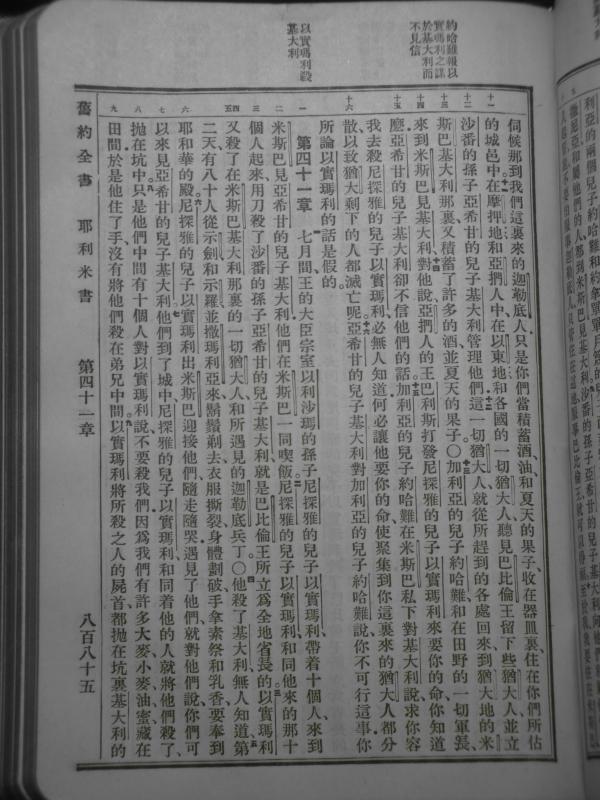 約哈難報以
實瑪利之謀
於基大利而
不見信
以實瑪利殺
基大利
伺候那到我們這裏來的迦勒底人只是你們當積蓄酒油和夏天的果子收在器皿裏住在你們所佔
的城邑中在摩押地和亞捫人中在以東地和各國的一切猶大人聽見巴比倫王留下些猶大人並立
沙番的孫子亞希甘的兒子基大利管理他們這一切猶大人就從所趕到的各處回來到猶大地的米
斯巴基大利那裏又積蓄了許多的酒並夏天的果子〇加利亞的兒子約哈難和在田野的一切軍長
來到米斯巴見基大利對他說亞捫人的王巴利斯打發尼探雅的兒子以實瑪利來要你的命你知道
麼亞希甘的兒子基大利卻不信他們的話加利亞的兒子約哈難在米斯巴私下對基大利說求你容
我去殺尼探雅的兒子以實瑪利必無人知道何必讓他要你的命使聚集到你這裏來的猶大人都分
散以致猶大剩下的人都滅亡呢亞希甘的兒子基大利對加利亞的兒子約哈難說你不可行這事你
所論以實瑪利的話是假的
第四十一章 七月間王的大臣宗室以利沙瑪的孫子尼探雅的兒子以實瑪利帶着十個人來到
米斯巴見亞希甘的兒子基大利他們在米斯巴一同喫飯尼探雅的兒子以實瑪利和同他來的那十
個人起來用刀殺了沙番的孫子亞希甘的兒子基大利就是巴比倫王所立為全地省長的以實瑪利
又殺了在米斯巴基大利那裏的一切猶大人和所遇見的迦勒底兵丁〇他殺了基大利無人知道第
二天有八十人從示劍和示羅並撒瑪利亞來鬍鬚剃去衣服撕裂身體劃破手拿素祭和乳香要奉到
耶和華的殿尼探雅的兒子以實瑪利出米斯巴迎接他們隨走隨哭遇見了他們就對他們說你們可
以來見亞希甘的兒子基大利他們到了城中尼探雅的兒子以實瑪利和同着他的人就將他們殺了
拋在坑中只是他們中間有十個人對以實瑪利說不要殺我們因為我們有許多大麥小麥油蜜藏在
田間於是他住了手沒有將他們殺在弟兄中間以實瑪利將所殺之人的屍首都拋在坑裏基大利的
舊約全書 耶利米書 第四十一章 八百八十五